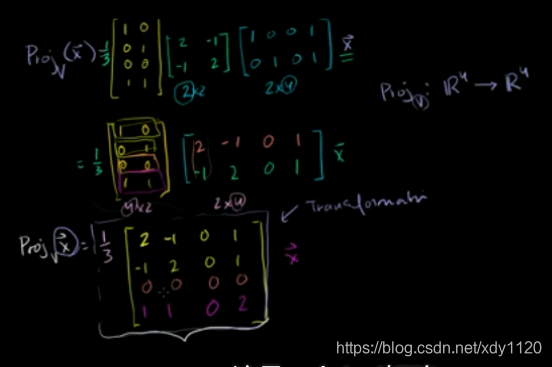 Proj_V(x⃗) = 1/3 [1 0; 0 1; 0 0; 1 1] [2 -1; -1 2] [1 0 0 1; 0 1 0 1] x⃗
2x2 2x4
Proj_V: ℝ⁴ → ℝ⁴
= 1/3 [1 0; 0 1; 0 0; 1 1] [2 -1 0 1; -1 2 0 1] x⃗
4x2 2x4
Proj_V x⃗ = 1/3 [2 -1 0 1; -1 2 0 1; 0 0 0 0; 1 1 0 2] x⃗
https://blog.csdn.net/xdy1120